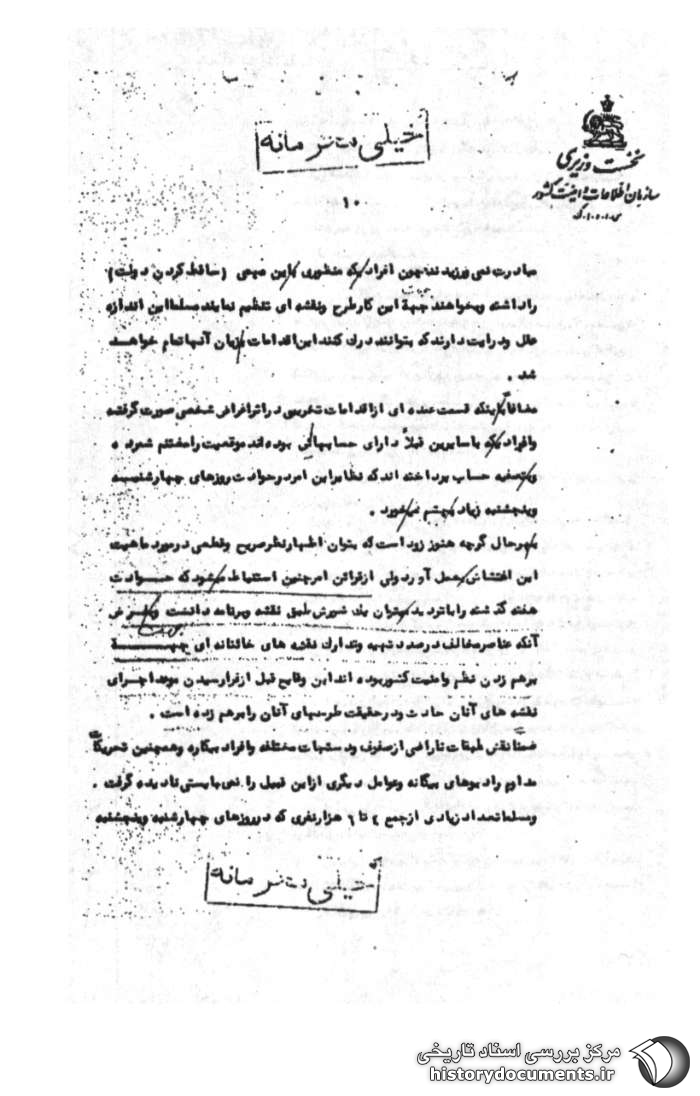 نخست وزیری
سازمان اطلاعات و امنیت کشور
خیلی محرمانه
۱۰
مبادرت نمی ورزیدند چون افرادیکه منظوری باین مهمی (ساقط کردن دولت)
را داشته و بخواهند جهة این کار طرح و نقشه ای تنظیم نمایند مسلما این اندازه
عقل و درایت دارند که بتوانند درک کنند این اقدامات بزیان آنها تمام خواهد
شد .
مضافا باینکه قسمت عمده ای از اقدامات تخریبی در اثر اغراض شخصی صورت گرفته
و افرادیکه با سایرین قبلا دارای حسابهائی بوده اند موقعیت را مغتنم شمرده
و بتصفیه حساب پرداخته اند که نظایر این امر در حوادث روزهای چهارشنبه
و پنجشنبه زیاد بچشم میخورد .
بهرحال گرچه هنوز زود است که بتوان اظهار نظر صریح و قطعی در مورد ماهیت
این اغتشاش بعمل آورد ولی از قرائن امر چنین استنباط میشود که حوادث
هفته گذشته را با تردید میتوان یک شورش طبق نقشه و برنامه دانست و بفرض
آنکه عناصر مخالف درصدد تهیه و تدارک نقشه های خائنانه ای جهة
برهم زدن نظم و امنیت کشور بوده اند این وقایع قبل از فرارسیدن موعد اجرای
نقشه های آنان حادث و در حقیقت طرحهای آنان را برهم زده است .
ضمنا نقش طبقات ناراضی از صفوف و دستجات مختلفه و افراد بیکاره و همچنین تحریکات
مداوم رادیوهای بیگانه و عوامل دیگری از این قبیل را نمی بایستی نادیده گرفت .
و مسلما تعداد زیادی از جمع ۴ تا ۶ هزار نفری که در روزهای چهارشنبه و پنجشنبه
خیلی محرمانه
مرکز بررسی اسناد تاریخی
historydocuments.ir